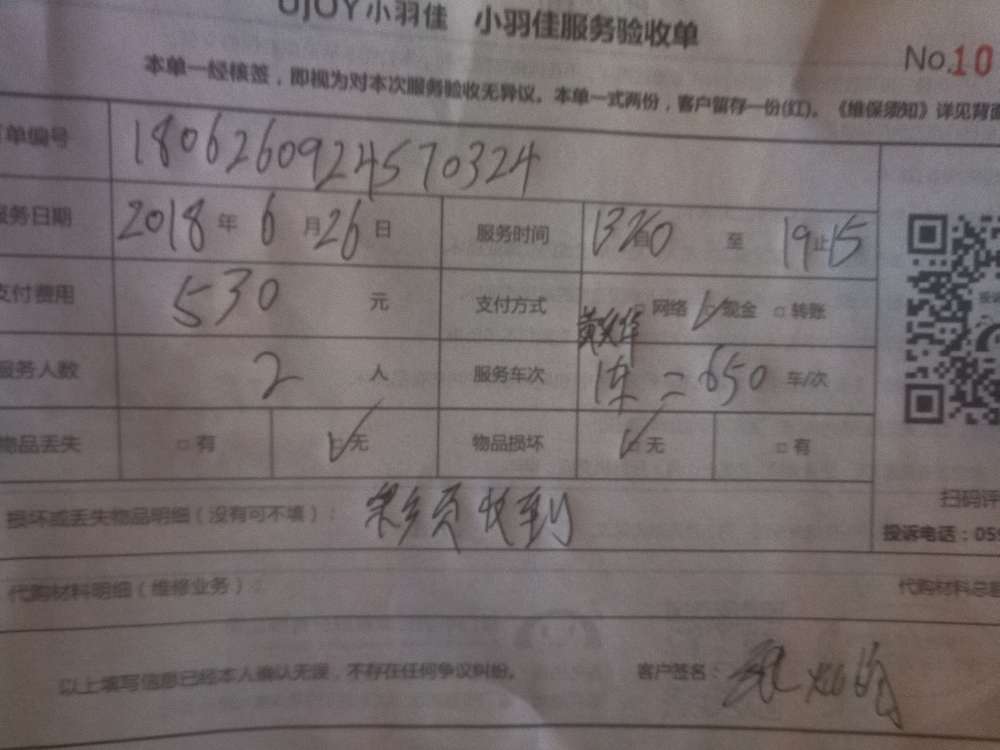 UJOY小羽佳 小羽佳服务验收单
No.10
本单一经核签，即视为对本次服务验收无异议。本单一式两份，客户留存一份(红)。《维保须知》详见背面
单编号 1806260924570324
服务日期 2018年6月26日 服务时间 至 19止15
支付费用 530元 支付方式 网络 现金 转账
服务人数 2人 服务车次 650 车/次
物品丢失 有 无 物品损坏 无 有
损坏或丢失物品明细（没有可不填）： 收到
扫码评
投诉电话：059
代购材料明细（维修业务）： 代购材料总
以上填写信息已经本人确认无误，不存在任何争议纠纷。 客户签名：